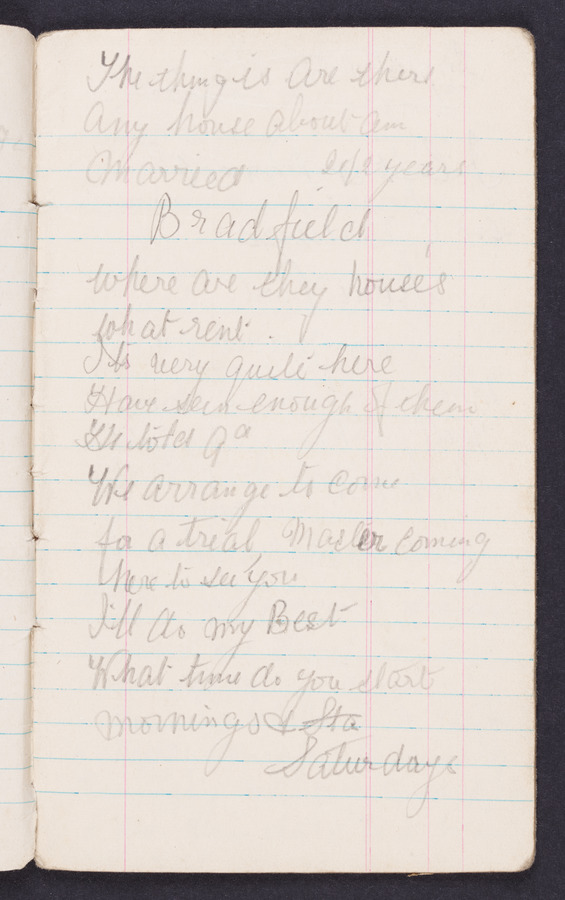 The thing is Are there
Any house about am
Married 2 1/2 years
Bradfield
where are they houses
what rent.
Its very quite here
Have seen enough of them
He told
We arrange to come
for a trial Master coming
here to see you
I'll do my Best
What time do you start
mornings & Sta
Saturdays